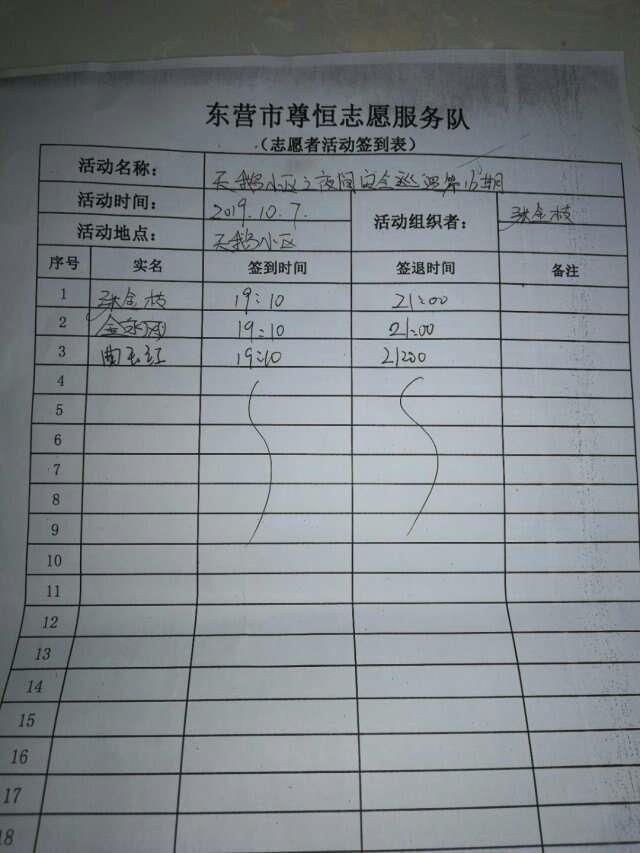 东营市尊恒志愿服务队
（志愿者活动签到表）
活动名称： 天鹅小区之夜间安全巡逻第16期
活动时间： 2019.10.7. 活动组织者： 张金枝
活动地点： 天鹅小区
序号 实名 签到时间 签退时间 备注
1 张金枝 19:10 21:00
2 19:10 21:00
3 曲玉红 19:10 21:00
4
5
6
7
8
9
10
11
12
13
14
15
16
17
18